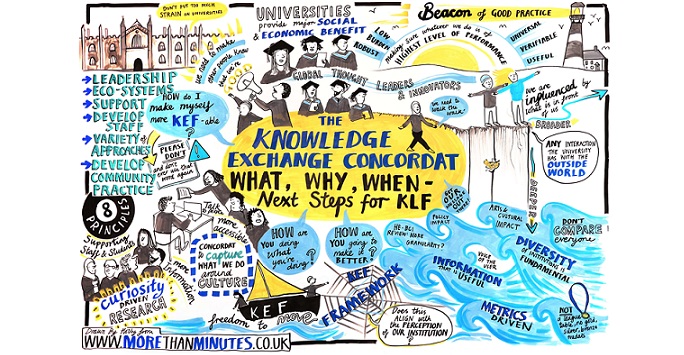 DON'T PUT TOO MUCH
STRAIN ON UNIVERSITIES
UNIVERSITIES
provide major SOCIAL
& ECONOMIC BENEFIT
we need to make
other people know
LOW
BURDEN
ROBUST
Beacon of GOOD PRACTICE
making sure whatever we do is at
HIGHEST LEVEL OF PERFORMANCE
UNIVERSAL
VERIFIABLE
USEFUL
GLOBAL THOUGHT LEADERS & INNOVATORS
LEADERSHIP
ECO-SYSTEMS
SUPPORT
DEVELOP
STAFF
VARIETY of
APPROACHES
DEVELOP
COMMUNITY
PRACTICE
HOW do I
MAKE myself
more KEF-able
PLEASE
DON'T
and don't
ever use that
word again
we need to
walk the
walk
we are
influenced by
what is in front
of us
BROADER
DEEPER
ANY INTERACTION
THE UNIVERSITY
HAS WITH THE
OUTSIDE
WORLD
THE
KNOWLEDGE
EXCHANGE CONCORDAT
WHAT, WHY, WHEN -
Next Steps for KLF
8
PRINCIPLES
Supporting
Staff & Students
Curiosity
DRIVEN
RESEARCH
Talk to
people
more
accessible
information
CONCORDAT
to capture
WHAT WE DO
around
CULTURE
HOW are
you doing
what
you're
doing?
HOW are
YOU GOING
to make
it
BETTER?
KEF
freedom to move
KEF
FRAMEWORK
POLICY
IMPACT
HE-BCI
REVIEW: MORE
GRANULARITY?
VOICE OF
THE USER
INFORMATION
that is USEFUL
ARTS &
CULTURAL
IMPACT
DIVERSITY
OF INSTITUTIONS IS
FUNDAMENTAL
DON'T
COMPARE
everyone
METRICS
DRIVEN
Does this
ALIGN with
the PERCEPTION
OF OUR INSTITUTION?
NOT
a league
table, no gold,
silver, bronze
medals
Drawn by Kelly from
WWW.MORETHANMINUTES.CO.UK